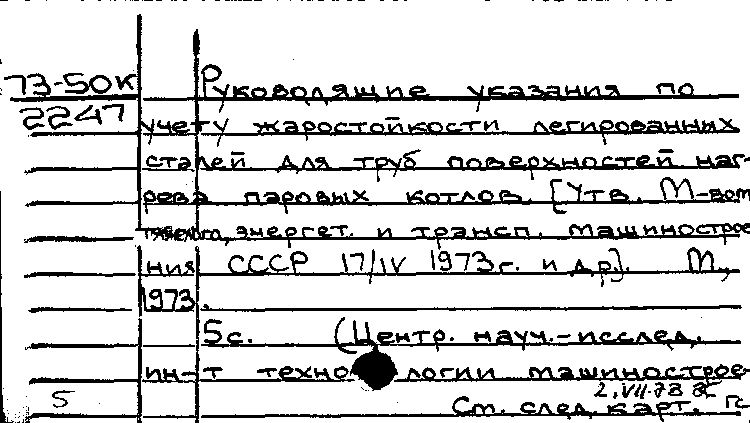 73-50к Руководящие указания по
2247 учету жаростойкости легированных
сталей для труб поверхностей наг-
рева паровых котлов. [Утв. М-вом
тяжелого, энергет. и трансп. машинострое
ния СССР 17/IV 1973г. и др]. М.,
1973.
5с. (Центр. науч.-исслед.
ин-т технологии машинострое-
5 2.VII-73
См. след. карт.